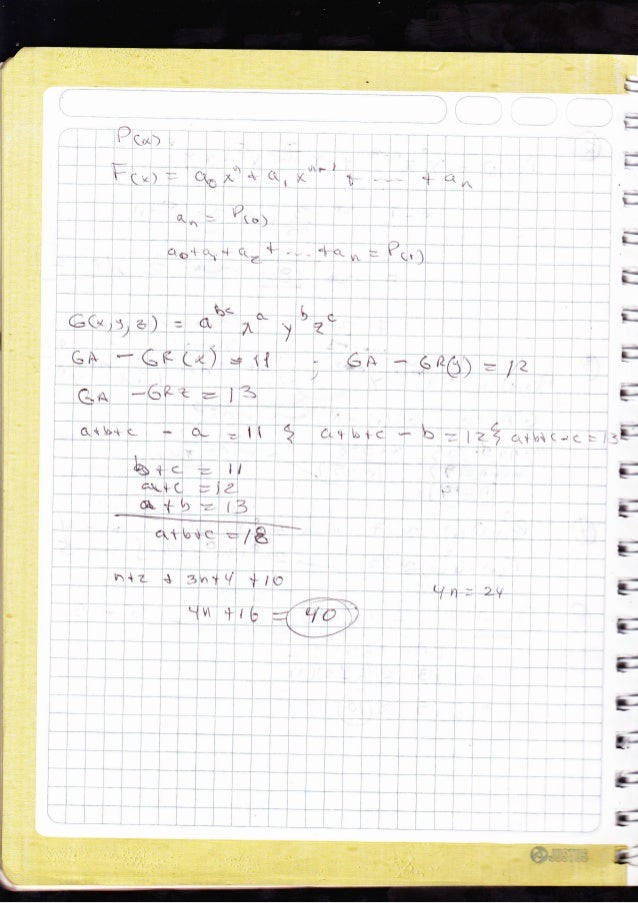 P(x)
F(x) = a₀ xⁿ + a₁ xⁿ⁺¹ + ---- + aₙ
aₙ = P(0)
a₀+a₁+a₂+ ... +aₙ = P(1)
G(x,y,z) = a^bc x^a y^b z^c
GA - GR(x) = 11 ; GA - GR(y) = 12
GA - GRz = 13
a+b+c - a = 11 { a+b+c - b = 12 { a+b+c-c = 13
b+c = 11
a+c = 12
a+b = 13
a+b+c = 18
n+2 + 3n+4 +10
4n = 24
4n +16 = 40
JUSTUS